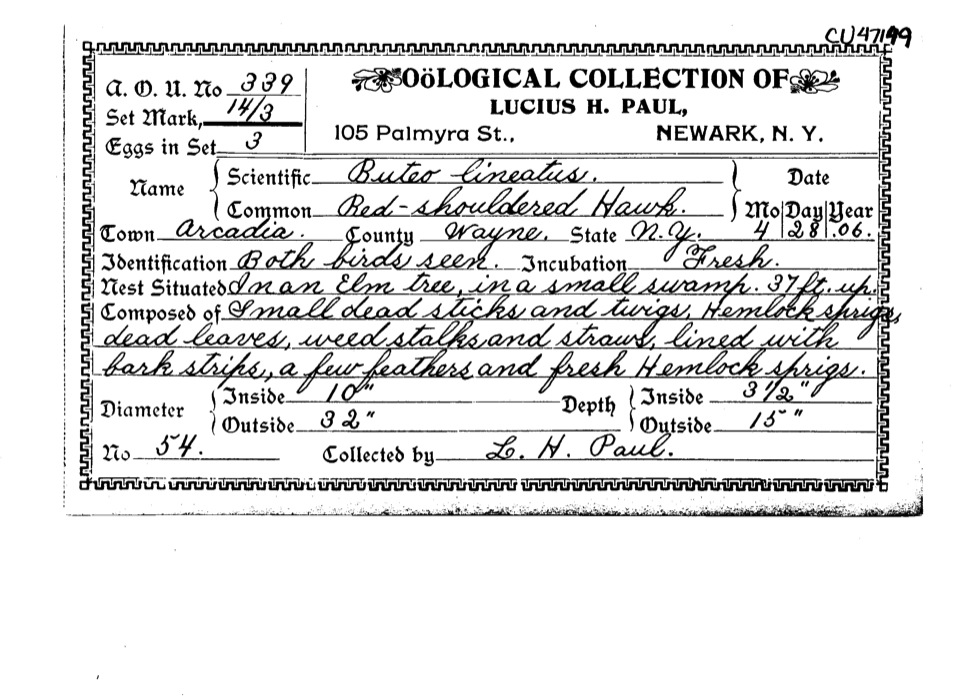 CU47199
A. O. U. No 339
Set Mark, 14/3
Eggs in Set 3
OöLOGICAL COLLECTION OF
LUCIUS H. PAUL,
105 Palmyra St., NEWARK, N. Y.
Name Scientific Buteo lineatus. Date
Common Red-shouldered Hawk. Mo Day Year
Town Arcadia. County Wayne. State N.Y. 4 28 .06.
Identification Both birds seen. Incubation Fresh.
Nest Situated In an Elm tree, in a small swamp. 37 ft. up.
Composed of Small dead sticks and twigs, Hemlock sprigs,
dead leaves, weed stalks and straws, lined with
bark strips, a few feathers and fresh Hemlock sprigs.
Diameter Inside 10" Depth Inside 3 1/2"
Outside 32" Outside 15"
No 54. Collected by L. H. Paul.